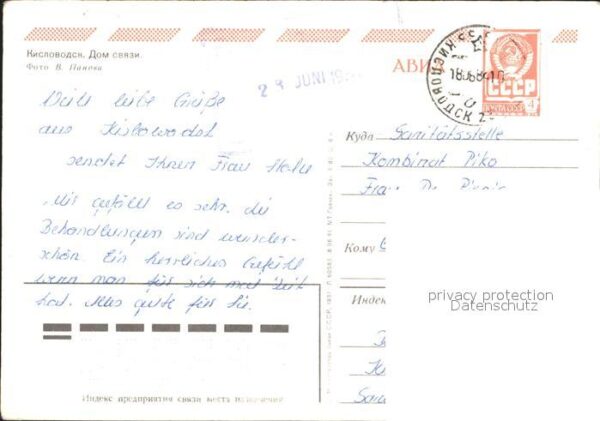 Кисловодск. Дом связи.
Фото В. Панова
АВИА
28 JUNI 19
КИСЛОВОДСК
СССР
Viele liebe Grüße
aus Kislowodsk
sendet Ihnen Frau Hahn
Mir gefällt es sehr, die
Behandlungen sind wunder-
schön. Ein herrliches Gefühl
wenn man für sich mal Zeit
hat. Alles gute für Sie.
Куда Sanitätsstelle
Kombinat Piko
Frau Dr.
Кому
Индек
privacy protection
Datenschutz
Индекс предприятия связи места назначения